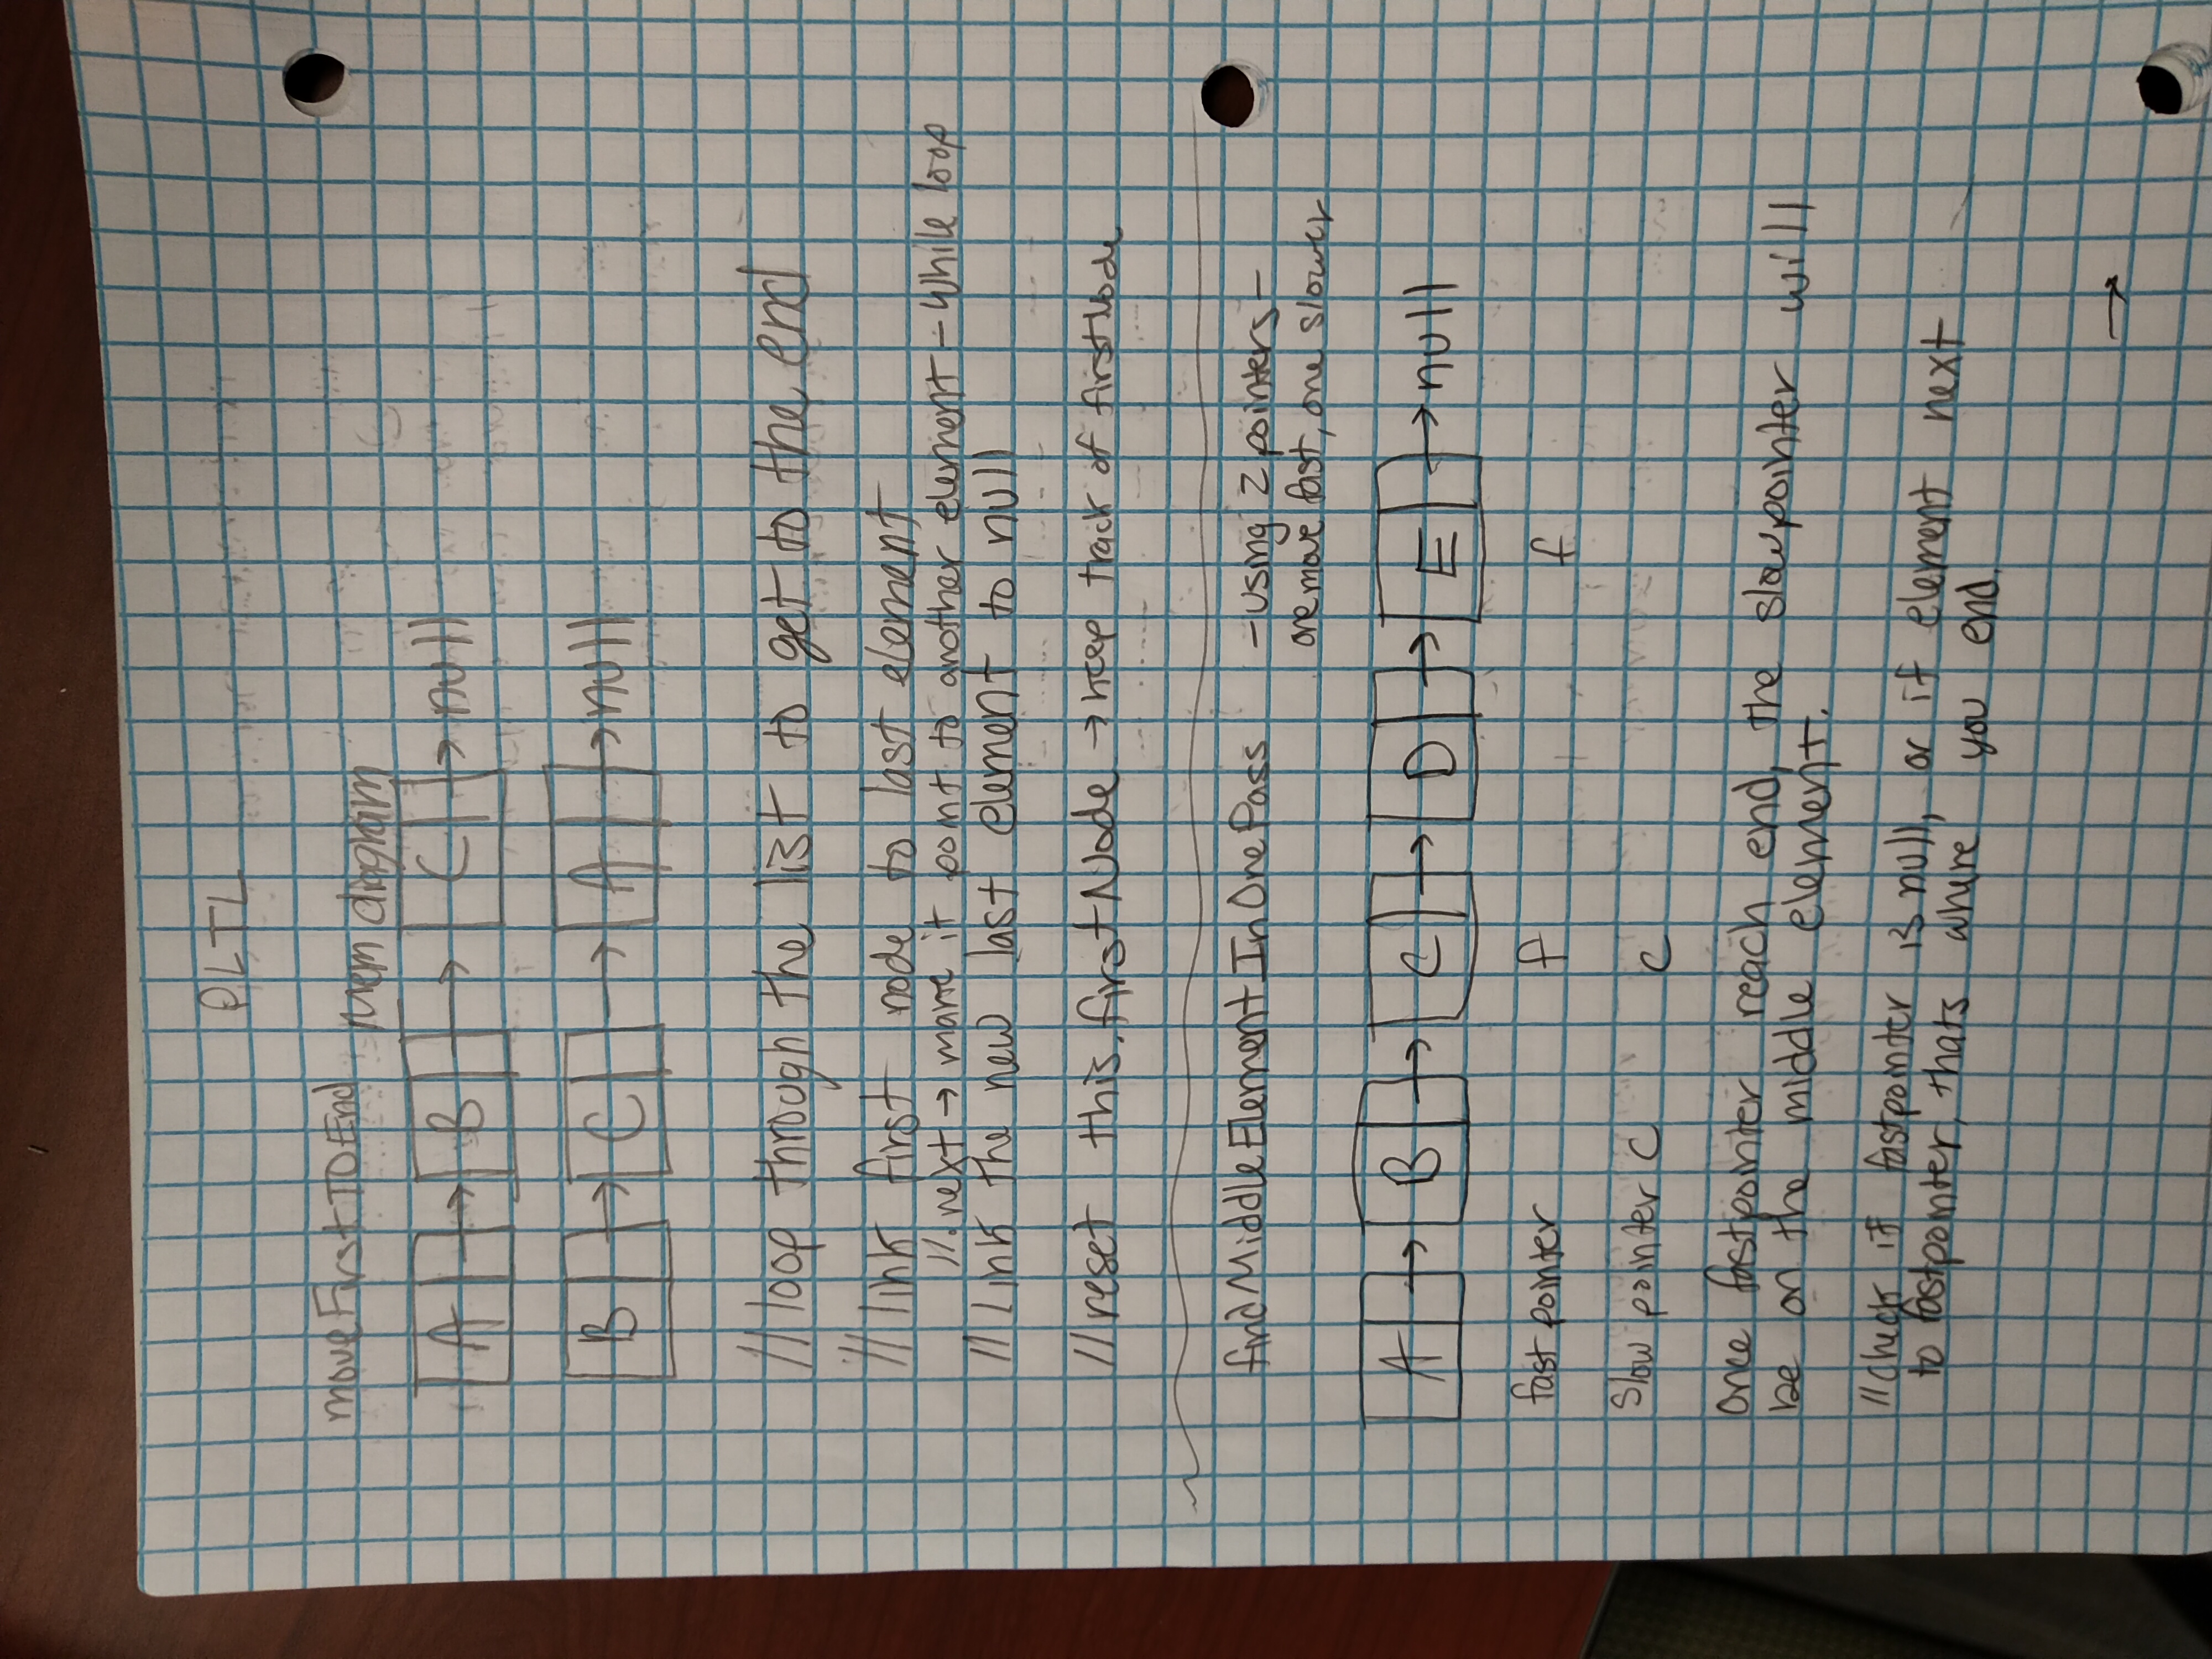 PLTL
moveFirstTOEnd mem diagram
A → B → C → null
B → C → A → null
//loop through the list to get to the end
//link first node to last element
//.next → make it point to another element - while loop
//Link the new last element to null
//reset this.firstNode → keep track of firstNode
findMiddleElementInOnePass - using 2 pointers -
one move fast, one slower
A → B → C → D → E → null
fast pointer f f
slow pointer c c
once fastpointer reach end, the slowpointer will
be on the middle element.
//check if fastpointer is null, or if element next
to fastpointer, thats where you end.
→